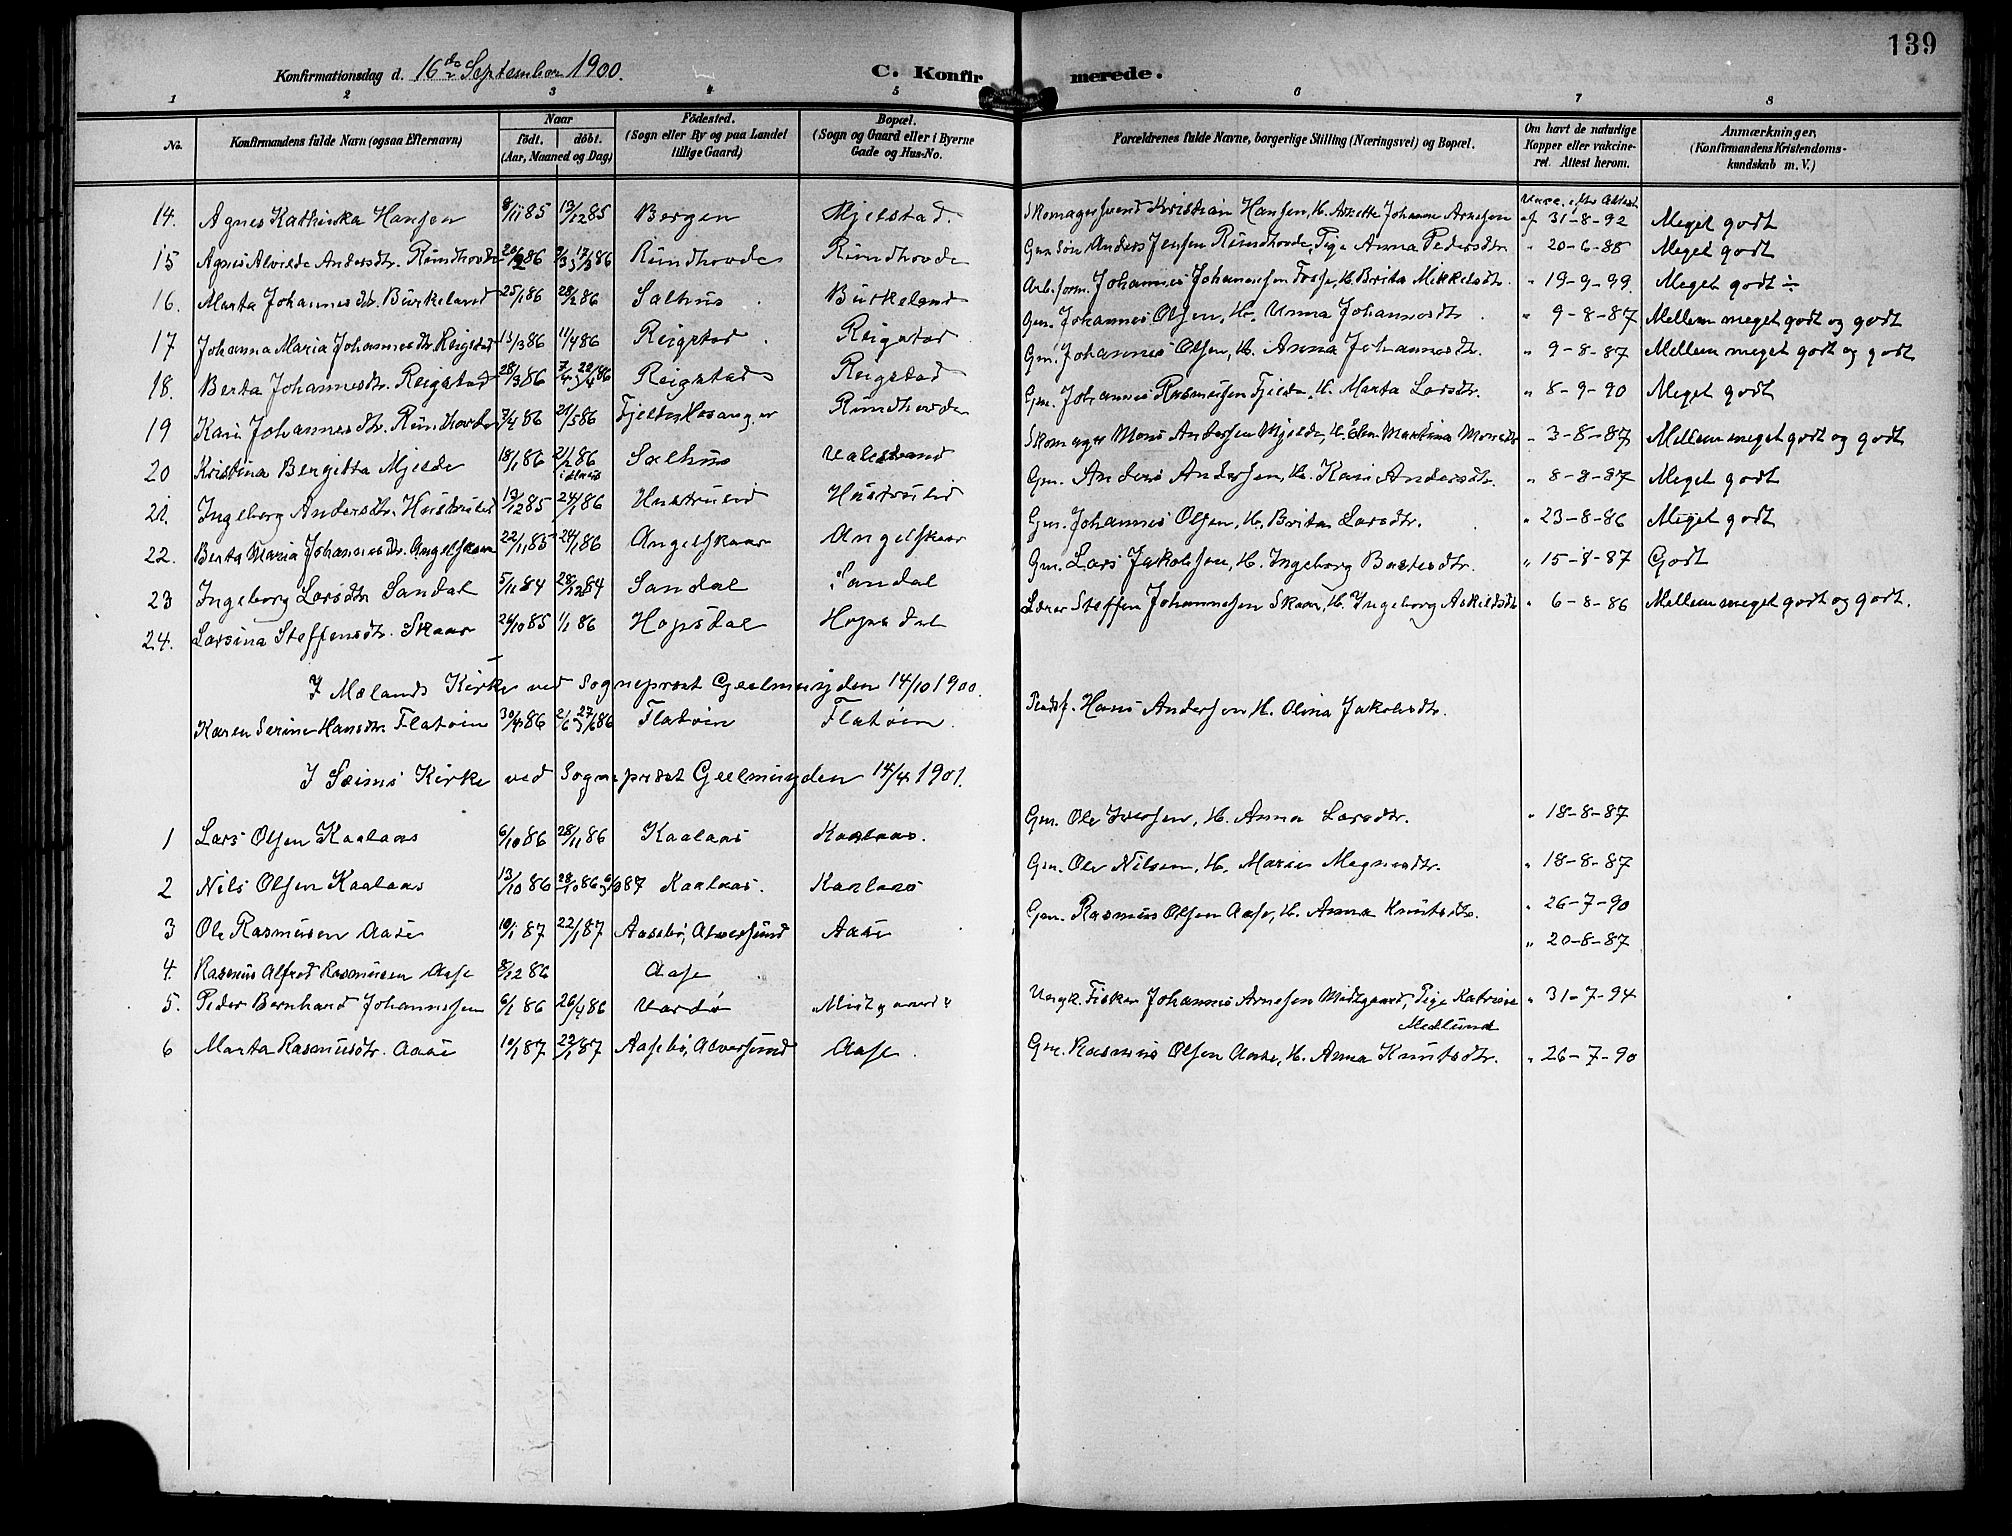 139
Konfirmationsdag d. 16de September 1900.
C. Konfirmerede.
1 2 3 4 5 6 7 8
No.
Konfirmandens fulde Navn (ogsaa Efternavn)
Naar
født. døbt.
(Aar, Maaned og Dag)
Fødested.
(Sogn eller By og paa Landet
tillige Gaard)
Bopæl.
(Sogn og Gaard eller i Byerne
Gade og Hus-No.
Forældrenes fulde Navne, borgerlige Stilling (Næringsvei) og Bopæl.
Om havt de naturlige
Kopper eller vakcine-
ret. Attest herom.
Anmærkninger,
(Konfirmandens Kristendoms-
kundskab m. V.)
14. Agnes Kathinka Hansen 8/11 85 13/12 85 Bergen Mjelstad. Skomagersvend Kristian Hansen, H. Johanne Arnesen af 31-8-92 Meget godt
15 Agnes Alvilde Andersdtr. Rundhovde 86 Rundhovde Rundhovde Gm. Søn Anders Jensen Rundhovde, Pige Anna Pedersdtr. " 20-6-88 Meget godt
16. Marta Johannesdtr. Burkeland 25/1 86 28/2 86 Salhus Burkeland Arb.form. Johannes Johannessen Fosse, H. Brita Mikkelsdtr. " 19-9-99. Meget godt ÷
17 Johanna Maria Johannesdtr. Reigstad 13/3 86 11/4 86 Reigstad Reigstad Gm. Johannes Olsen, H. Anna Johannesdtr. " 9-8-87 Mellem meget godt og godt
18. Berta Johannesdtr. Reigstad 28/3 86 86 Reigstad Reigstad Gm. Johannes Olsen, H. Anna Johannesdtr. " 9-8-87 Mellem meget godt og godt
19 Kari Johannesdtr. Rundhovde 7/4 86 21/5 86 Fjelde, Hosanger Rundhovde Gm. Johannes Rasmussen Fjelde, H. Marta Larsdtr. " 8-9-90 Meget godt
20 Kristina Bergitta Mjelde 18/1 86 21/2 86 Salhus Valestrand Skomager Mons Andersen Mjelde, H. Elen Martina Monsdtr " 3-8-87 Mellem meget godt og godt
21. Ingeborg Andersdtr. Hustrulid 13/12 85 24/1 86 Hustrulid Hustrulid Gm. Anders Andersen, H. Kari Andersdtr. " 8-8-87 Meget godt
22. Berta Maria Johannesdtr. Angelskaar 22/11 85 24/1 86 Angelskaar Angelskaar Gm. Johannes Olsen, H. Brita Larsdtr. " 23-8-86 Meget godt
23 Ingeborg Larsdtr Sandal 5/11 84 28/12 84 Sandal Sandal Gm. Lars Jakobsen, H. Ingeborg Bastesdtr. " 15-8-87 Godt
24. Larsina Steffensdtr. Skaar 24/10 85 1/1 86 Hopsdal Hopsdal Lærer Steffen Johannesen Skaar, H. Ingeborg Askildsdtr " 6-8-86 Mellem meget godt og godt.
I Mælands Kirke ved Sogneprest Geelmuyden 14/10 1900.
Karen Serine Hansdtr. Flatøin 30/4 86 86 Flatøin Flatøin. Hans Andersen H. Olina Jakobsdtr.
I Seims Kirke ved Sogneprest Geelmuyden 14/4 1901.
1 Lars Olsen Kaalaas 6/10 86 28/11 86 Kaalaas Kaalaas. Gm. Ole Iversen, H. Anna Larsdtr. " 18-8-87
2 Nils Olsen Kaalaas 13/10 86 28/10 86 87 Kaalaas. Kaalaas Gm. Ole Nilsen, H. Marie Magnesdtr. " 18-8-87
3 Ole Rasmussen Aase 10/1 87 22/1 87 Aasebø, Alversund Aase Gm. Rasmus Olsen Aase, H. Anna Knutsdtr. " 26-7-90
4. Rasmus Alfred Rasmussen Aase 8/12 86 Aase " 20-8-87
5. Peder Bernhard Johannesen 6/1 86 26/4 86 Vardø "Midtgaard" Ungk. Fisker Johannes Arnesen Midtgaard, Pige Katrine
Medlund " 31-7-94
6 Marta Rasmusdtr. Aase 10/1 87 22/1 87 Aasebø, Alversund Aase. Gm. Rasmus Olsen Aase, H. Anna Knutsdtr. " 26-7-90